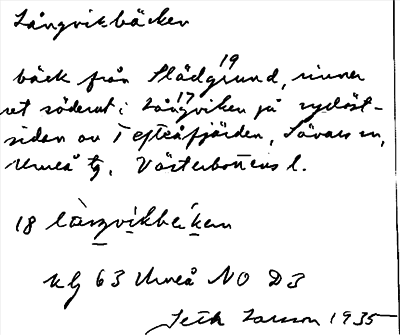 Långvikbäcken
19
bäck från Slädgrund, rinner
17
ut söderut i Långviken på sydöst-
sidan av Tefteåfjärden, Sävars sn,
Umeå tg, Västerbottens l.
18 làŋvikbɛ́kɛn
Kbl 63 Umeå NO D3
Seth Larsson 1935